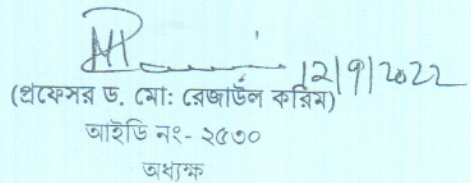 12/9/2022
(প্রফেসর ড. মো: রেজাউল করিম)
আইডি নং- ২৫৩০
অধ্যক্ষ